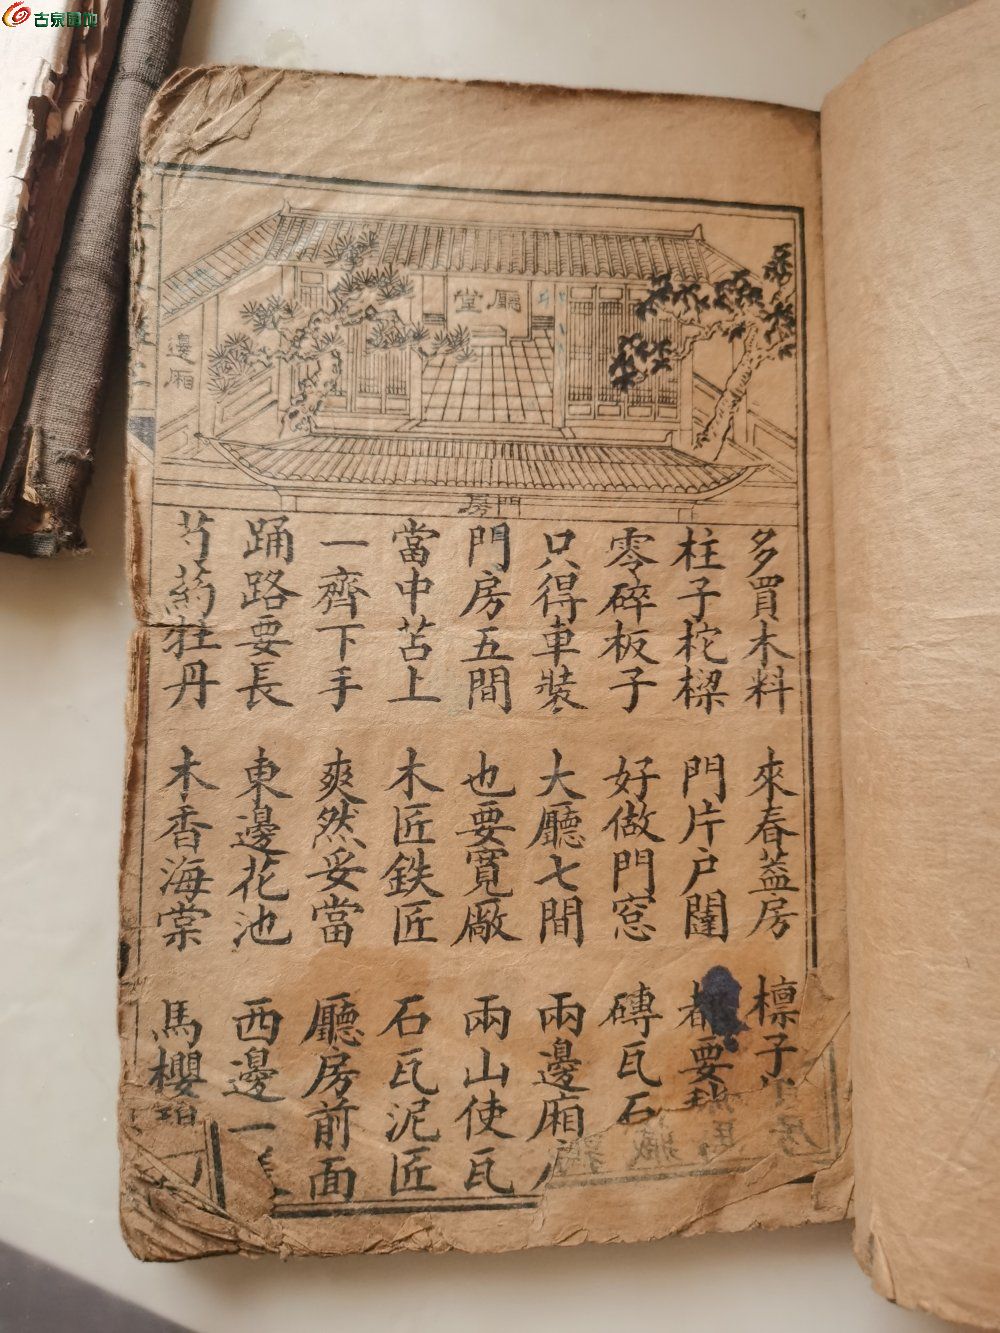 古泉園地
廳堂
邊廂
門房
多買木料 來春蓋房 檩子
柱子柁樑 門片户闥 都要
零碎板子 好做門窓 磚瓦石
只得車裝 大廳七間 兩邊廂
門房五間 也要寬厰 兩山使瓦
當中苫上 木匠鉄匠 石瓦泥匠
一齊下手 爽然妥當 廳房前面
踊路要長 東邊花池 西邊一
芍葯牡丹 木香海棠 馬櫻